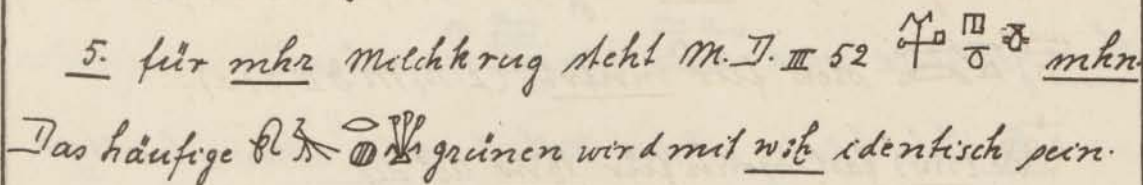 5. für mhr Milchkrug steht M.D. III 52 mhn.
Das häufige grünen wird mit wꜣḫ identisch sein.